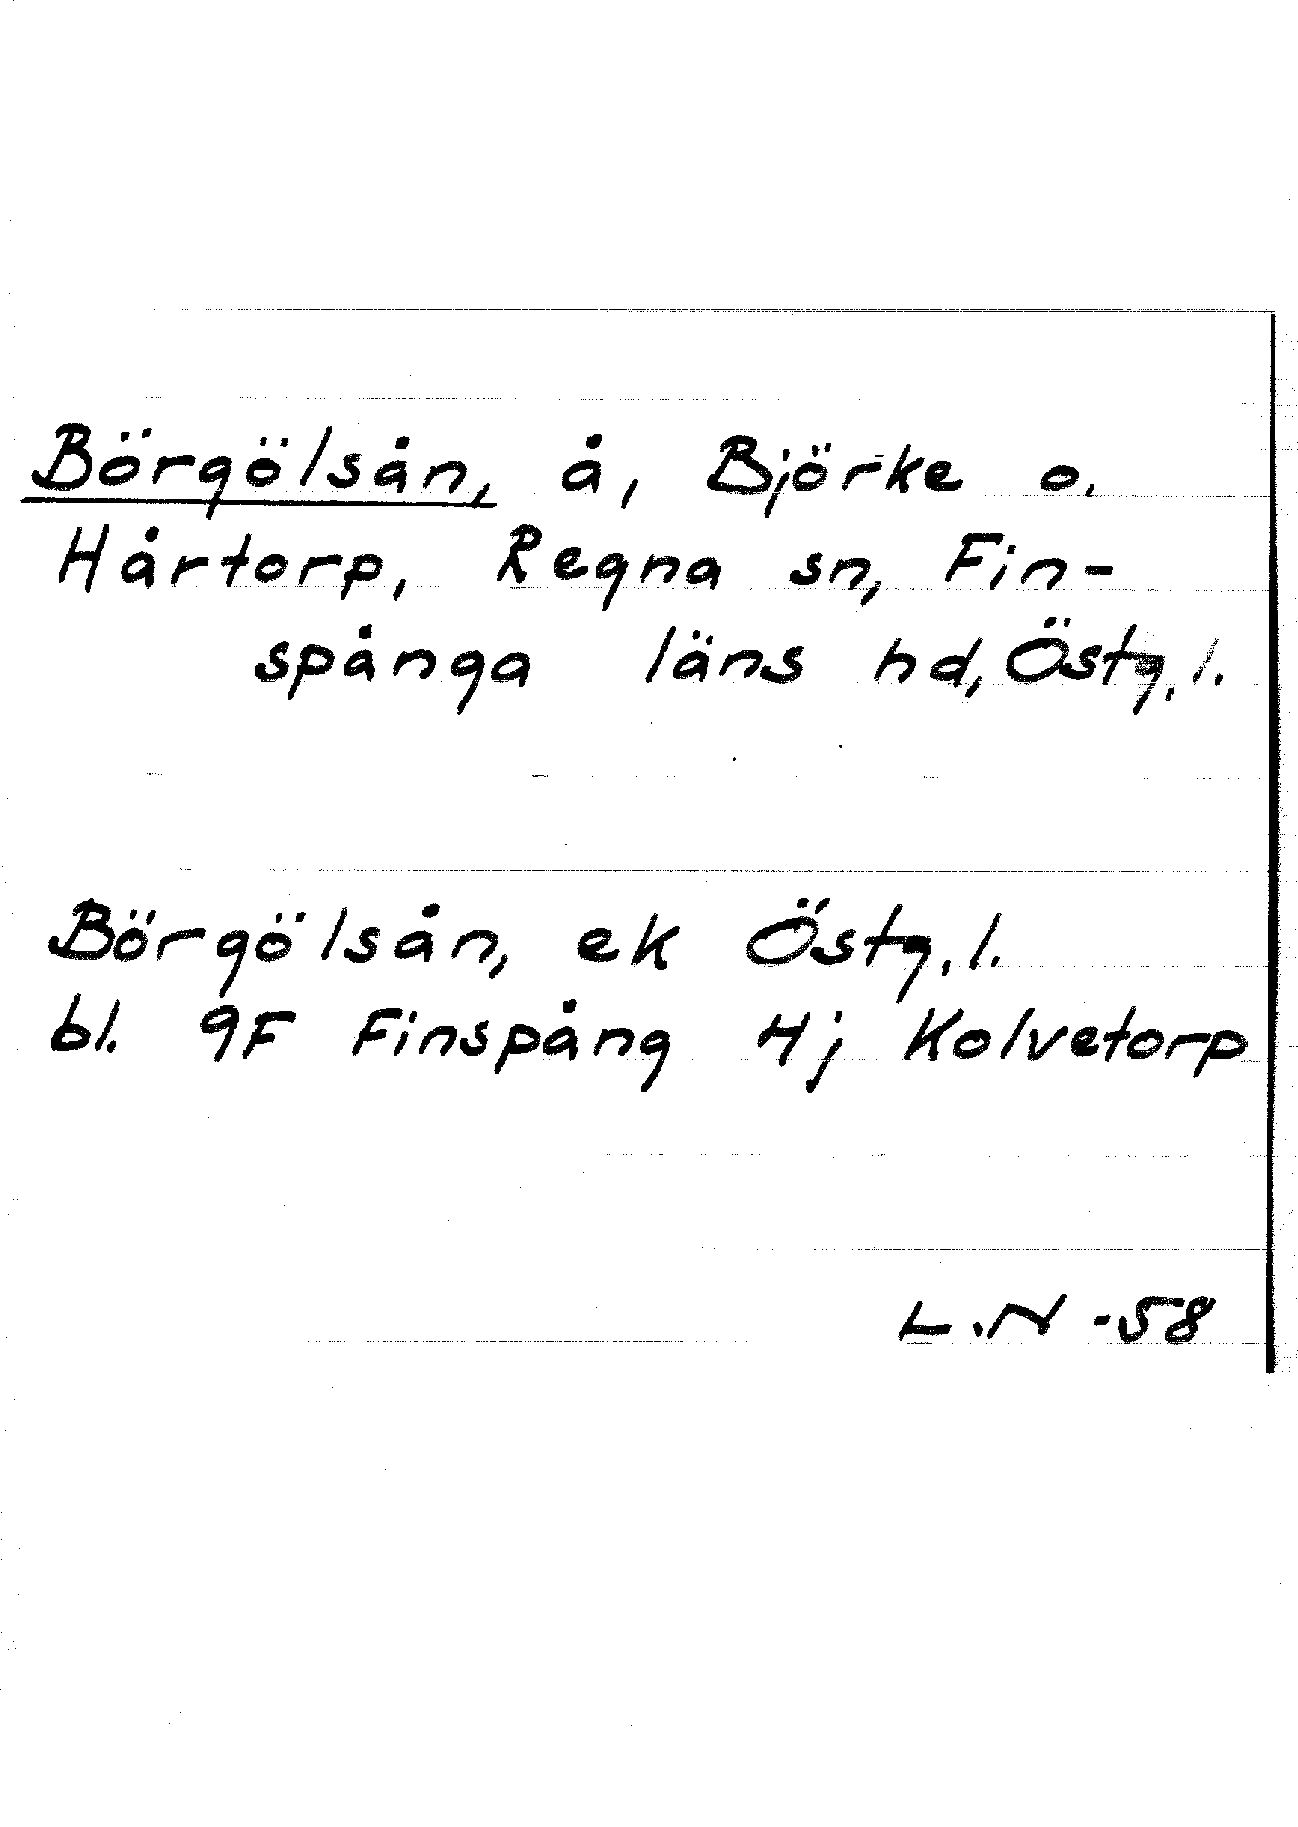 Börgölsån, å, Björke o.
Hårtorp, Regna sn, Fin-
spånga läns hd, Östg. l.
Börgölsån, ek Östg. l.
bl. 9F Finspång 4j Kolvetorp
L.N -58